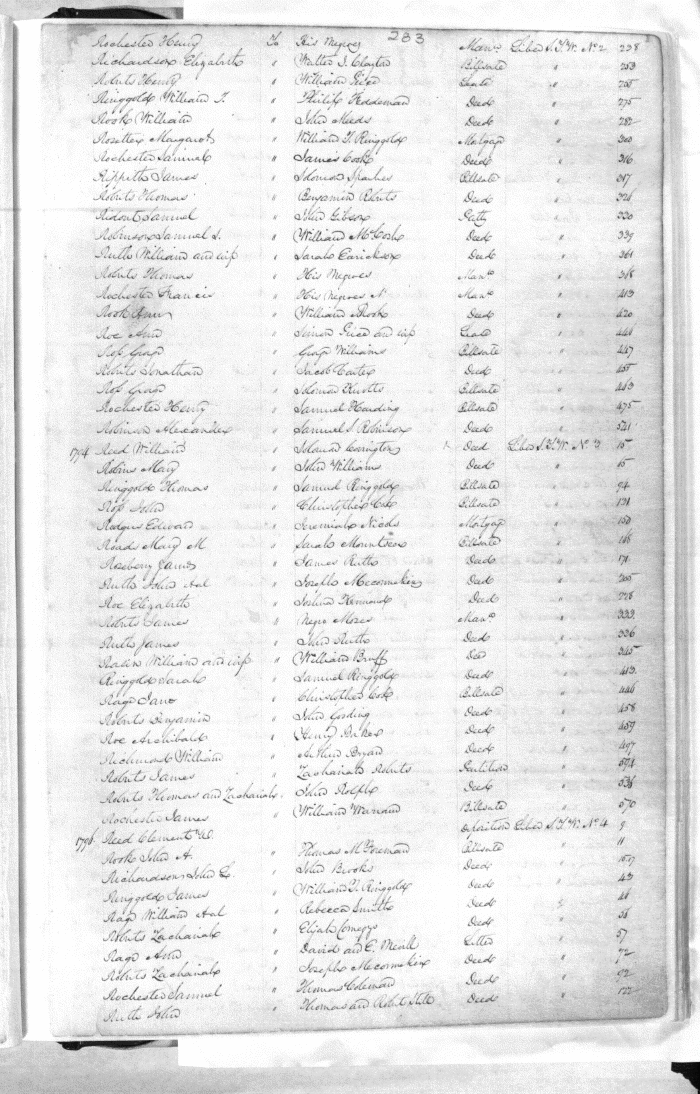 283
Rochester Henry To His Negroes Man° Liber S.T.W. N° 2 228
Richardson Elizabeth " Walter J. Clayton Billsale " 253
Roberts Henry " William Price Lease " 258
Ringgold William T. " Philip Feddeman Deed " 275
Rook William " John Meeds Deed " 282
Rosetter Margaret " William T. Ringgold Mortgage " 300
Rochester Samuel " James Cook Deed " 316
Rippeth James " Solomon Sparkes Billsale " 317
Roberts Thomas " Benjamin Roberts Deed " 326
Ridout Samuel " John Gibson " 330
Robinson Samuel S. " William McCosh Deed " 339
Ruth William and wife " Sarah Deed " 361
Roberts Thomas " His Negroes Man° " 368
Rochester Francis " His Negroes Man° " 413
Rook Ann " William Rook Deed " 420
Roe Ann " Simon Price and wife Lease " 446
Ross George " George Williams Billsale " 447
Roberts Jonathan " Jacob Deed " 455
Ross George " Solomon Knotts Billsale " 463
Rochester Henry " Samuel Harding Billsale " 475
Robinson Alexander " Samuel S. Robinson Deed " 521
1794 Reed William " Solomon Covington Deed Liber S.T.W. N° 3 15
Robins Mary " John Williams Deed " 15
Ringgold Thomas " Samuel Ringgold Billsale " 94
Ross John " Christopher Cox Billsale " 131
Rodgers Edward " Jeremiah Nicols Mortgage " 150
Reads Mary M " Sarah Billsale " 166
Roseberry James " James Ruth Deed " 171
Ruth John " Joseph Mccormekin Deed " 205
Roe Elizabeth " Joshua Kennard Deed " 228
Roberts James " Negro Moses Man° " 333
Ruth James " John Ruth Deed " 336
William and wife " William Bruff Deed " 345
Ringgold Sarah " Samuel Ringgold Deed " 413
Rage Jane " Christopher Cox Billsale " 446
Roberts Benjamin " John Deed " 458
Roe Archibald " Henry Deed " 459
Richmond William " Arthur Bryan Deed " 497
Roberts James " Zachariah Roberts Partition " 594
Roberts Thomas and Zachariah " John Rolph Deed " 536
Rochester James " William Billsale " 570
1796 Reed Clement Deposition Liber S.T.W. N° 4 9
Rook John A. " Thomas M. Foreman Billsale " 11
Richardson John E. " John Brooks Deed "
Ringgold James " William T. Ringgold Deed " 43
Rage William " Rebecca Smith Deed " 48
Roberts Zachariah " Elijah Comegys Deed "
Rage Ann " David and C. Neall Letter " 57
Roberts Zachariah " Joseph Mccormekin Deed " 72
Rochester Samuel " Thomas Coleman Deed "
Ruth John " Thomas and Robert Deed " 122